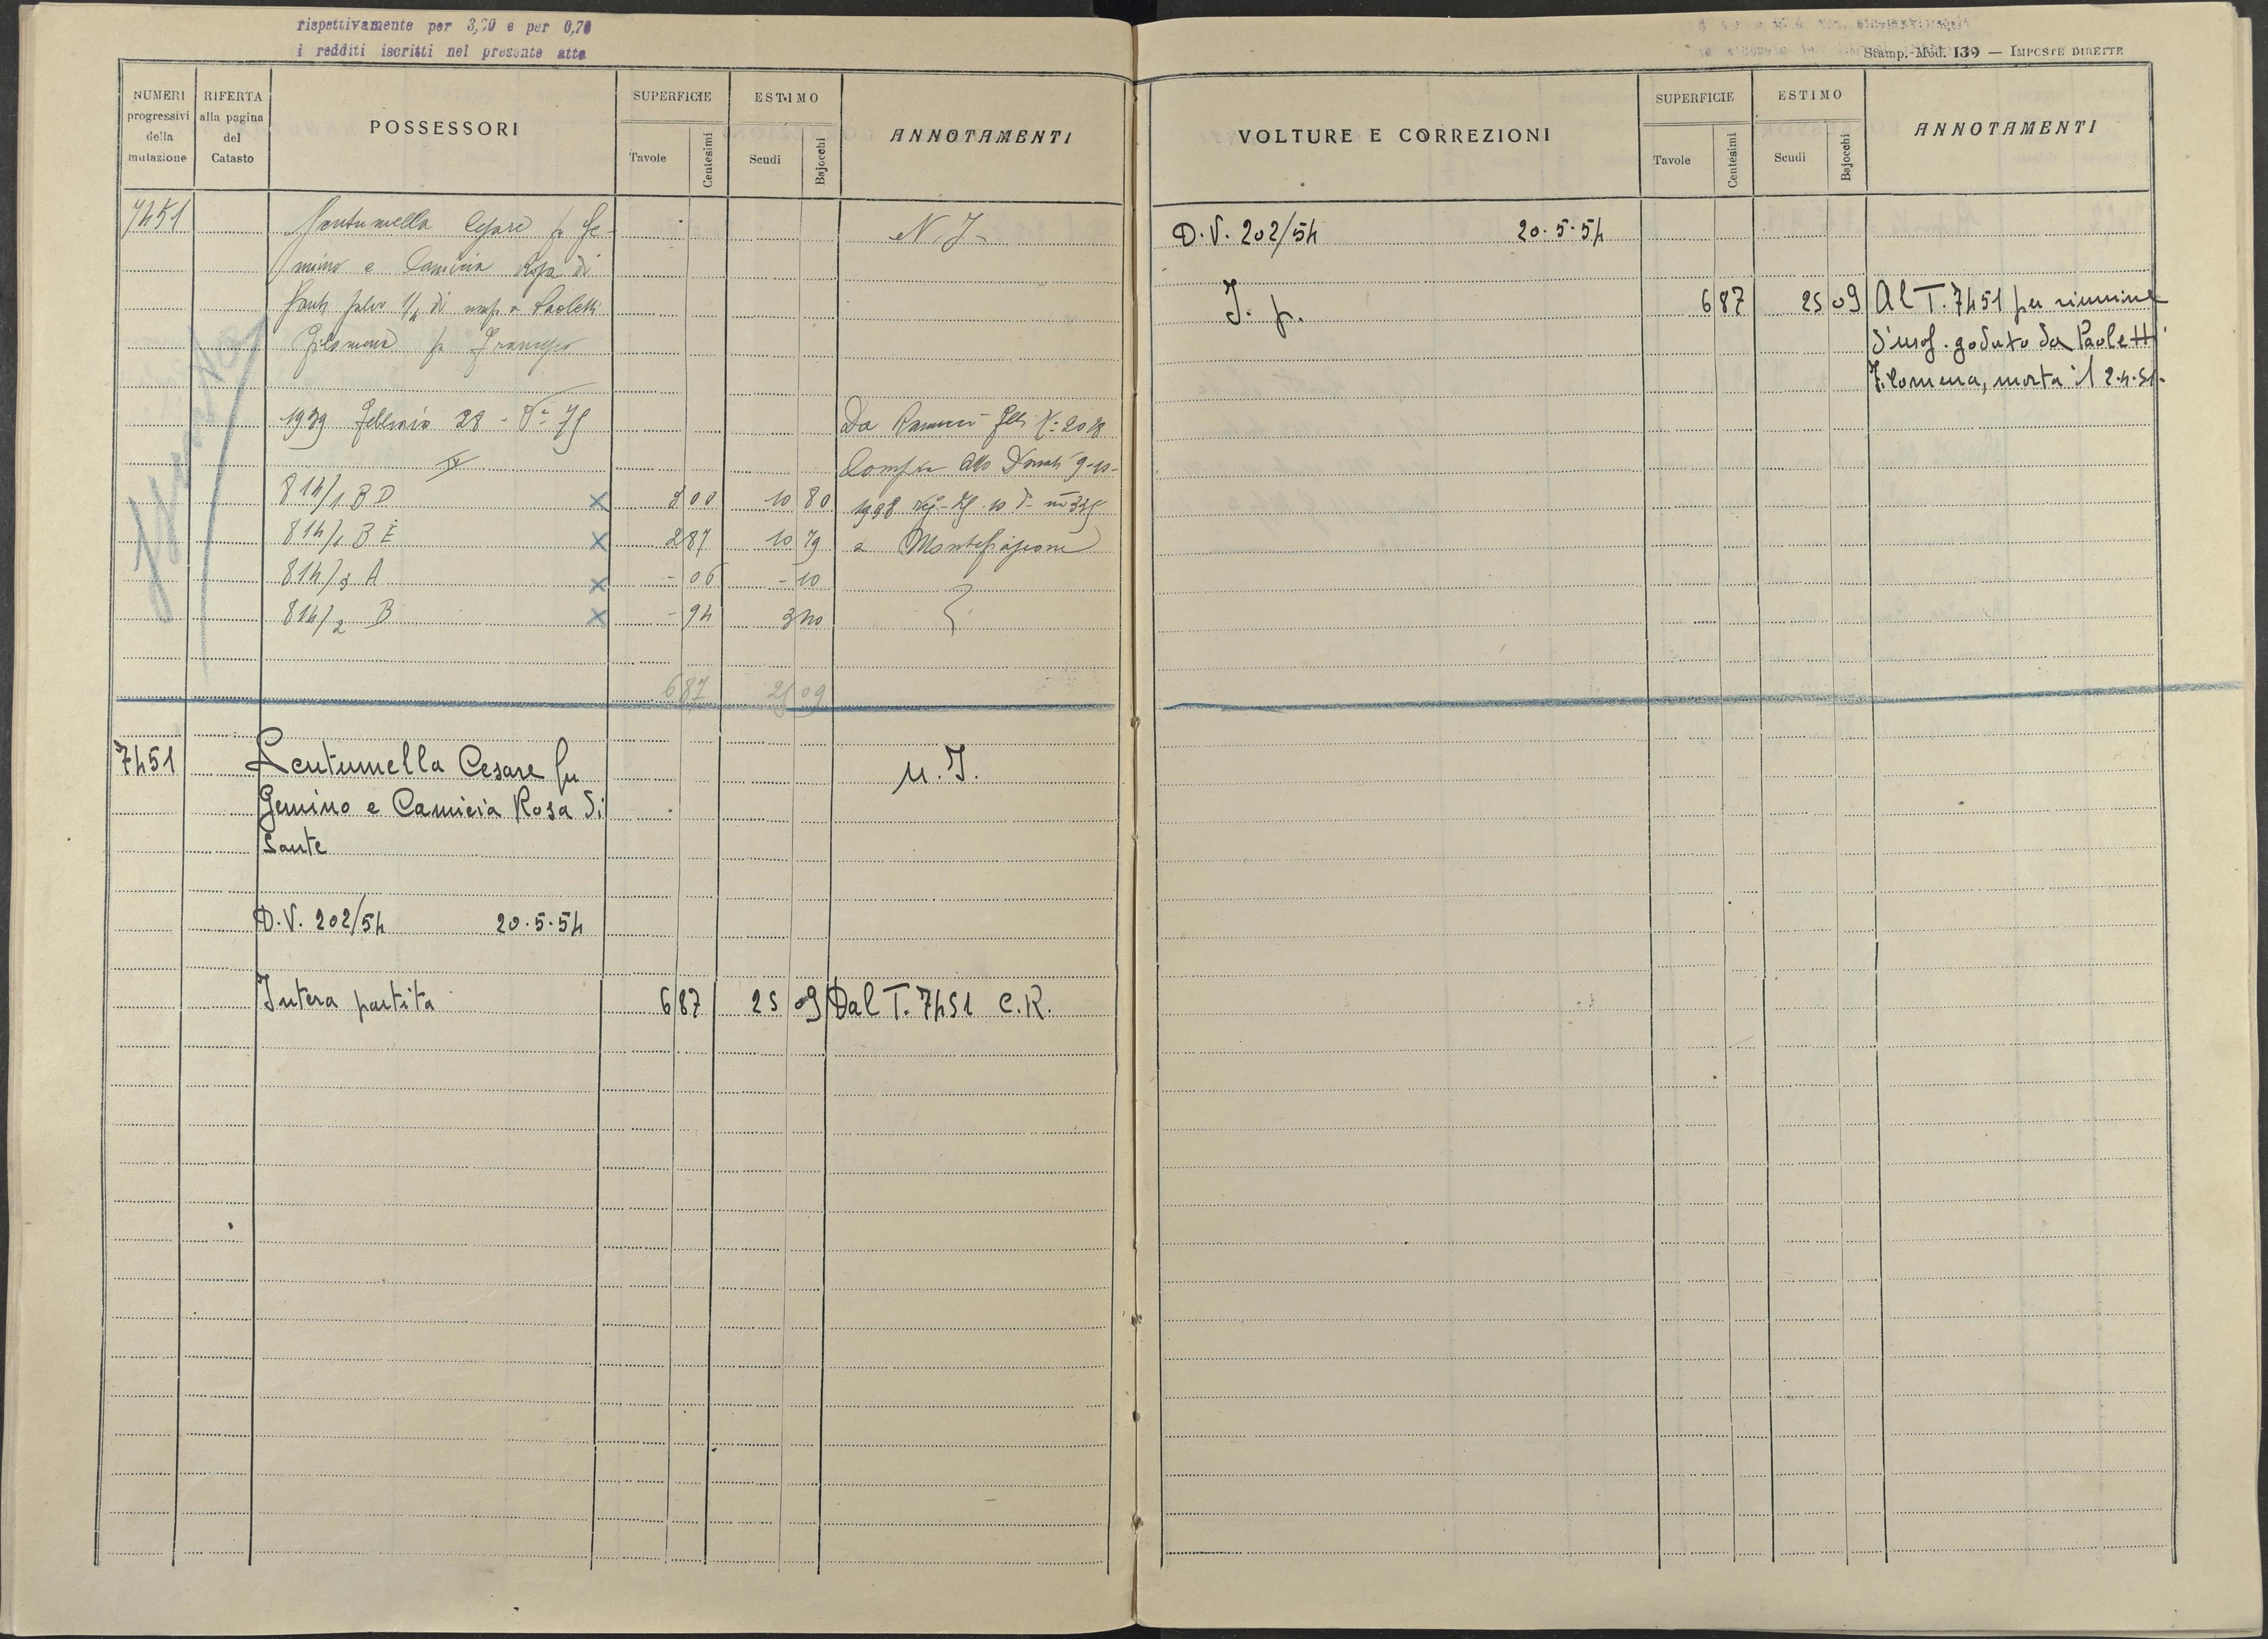 rispettivamente per 3,20 e per 0,70
i redditi iscritti nel presente atto
NUMERI progressivi della mutazione
RIFERTA alla pagina del Catasto
POSSESSORI
SUPERFICIE
Tavole
Centesimi
ESTIMO
Scudi
Bajocchi
ANNOTAMENTI
7451
Cesare fu Ge-
mino e Camicia Rosa di
Paoletti
Filomena fu Francesco
N. I.
1939 Febbraio 28 - 75
Da
IV
814/1 B D × 10 80
814/1 B E × 287 10 79
814/3 A × - 06 - 10
814/2 B × - 94 3 40
9-10-
1938
a Montefiascone
687 25 09
7451
Lentumella Cesare fu
Gemino e Camicia Rosa di
Sante
n. I.
D.V. 202/54 20.5.54
Intera partita 6 87 25 09 Dal T. 7451 C.R.
Stamp. Mod. 139 — IMPOSTE DIRETTE
VOLTURE E CORREZIONI
SUPERFICIE
Tavole
Centesimi
ESTIMO
Scudi
Bajocchi
ANNOTAMENTI
D.V. 202/54 20.5.54
I. p. 6 87 25 09 Al T. 7451 per riunione
d'usof. goduto da Paoletti
Filomena, morta il 2.4.51.